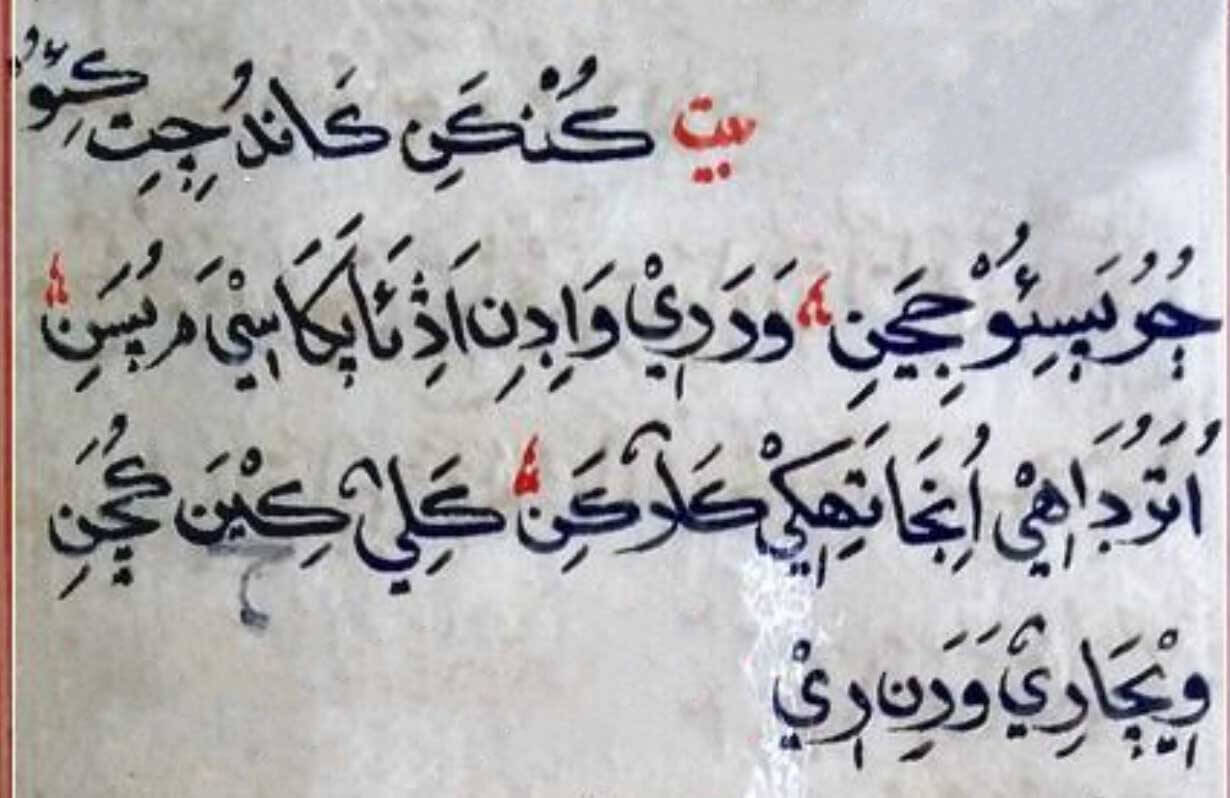 بيت كُنْكَنِ كَاندُ جِتِ كِئَو
جُرُ پَسِئُوْ جِجَنِ وَرَ دِرِيْ وَادِنِ اَڎِئَا پِكَاسِيْ مَ پُسَنِ
اُتَرُ دَاهِيْ اُنِجَا تَهِكِيْ كَلاَؤ كَنِ كَلِيْ كِيْنَ كُچَنِ
وِيْچَارِيْ وَرَنِ رِيْ